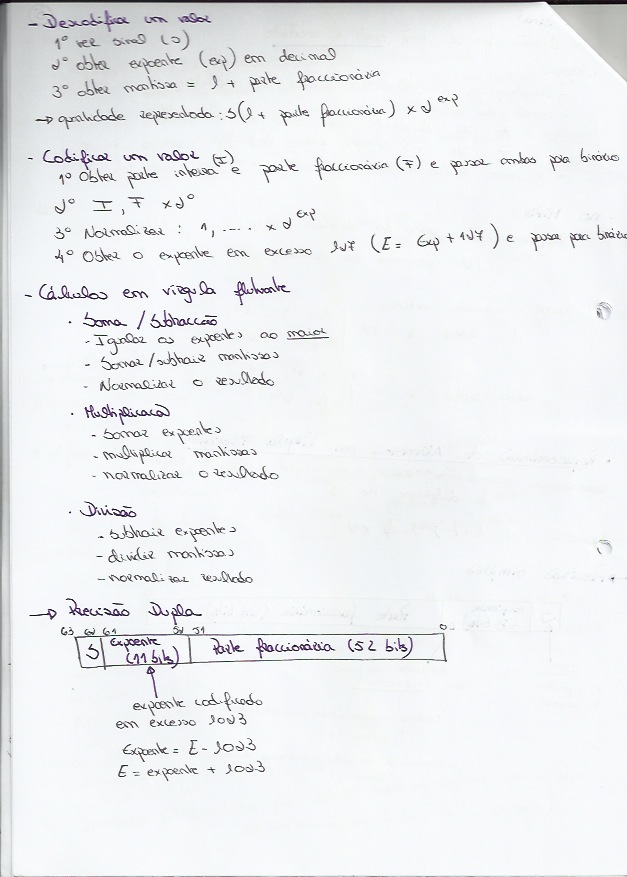 - Descodificar um valor
1º ver sinal (s)
2º obter expoente (exp) em decimal
3º obter mantissa = 1 + parte fraccionária
→ quantidade representada: S(1 + parte fraccionária) × 2^exp
- Codificar um valor
1º Obter parte inteira (I) e parte fraccionária (F) e passar ambas para binário
2º I, F × 2^0
3º Normalizar: 1, .... × 2^exp
4º Obter o expoente em excesso 127 (E = Exp + 127) e passar para binário
- Cálculos em vírgula flutuante
· Soma / Subtracção
- Igualar os expoentes ao maior
- Somar/subtrair mantissas
- Normalizar o resultado
· Multiplicação
- somar expoentes
- multiplicar mantissas
- normalizar o resultado
· Divisão
- subtrair expoentes
- dividir mantissas
- normalizar resultado
→ Precisão Dupla
63 62 61 52 51 0
S Expoente (11 bits) Parte fraccionária (52 bits)
expoente codificado
em excesso 1023
Expoente = E - 1023
E = expoente + 1023